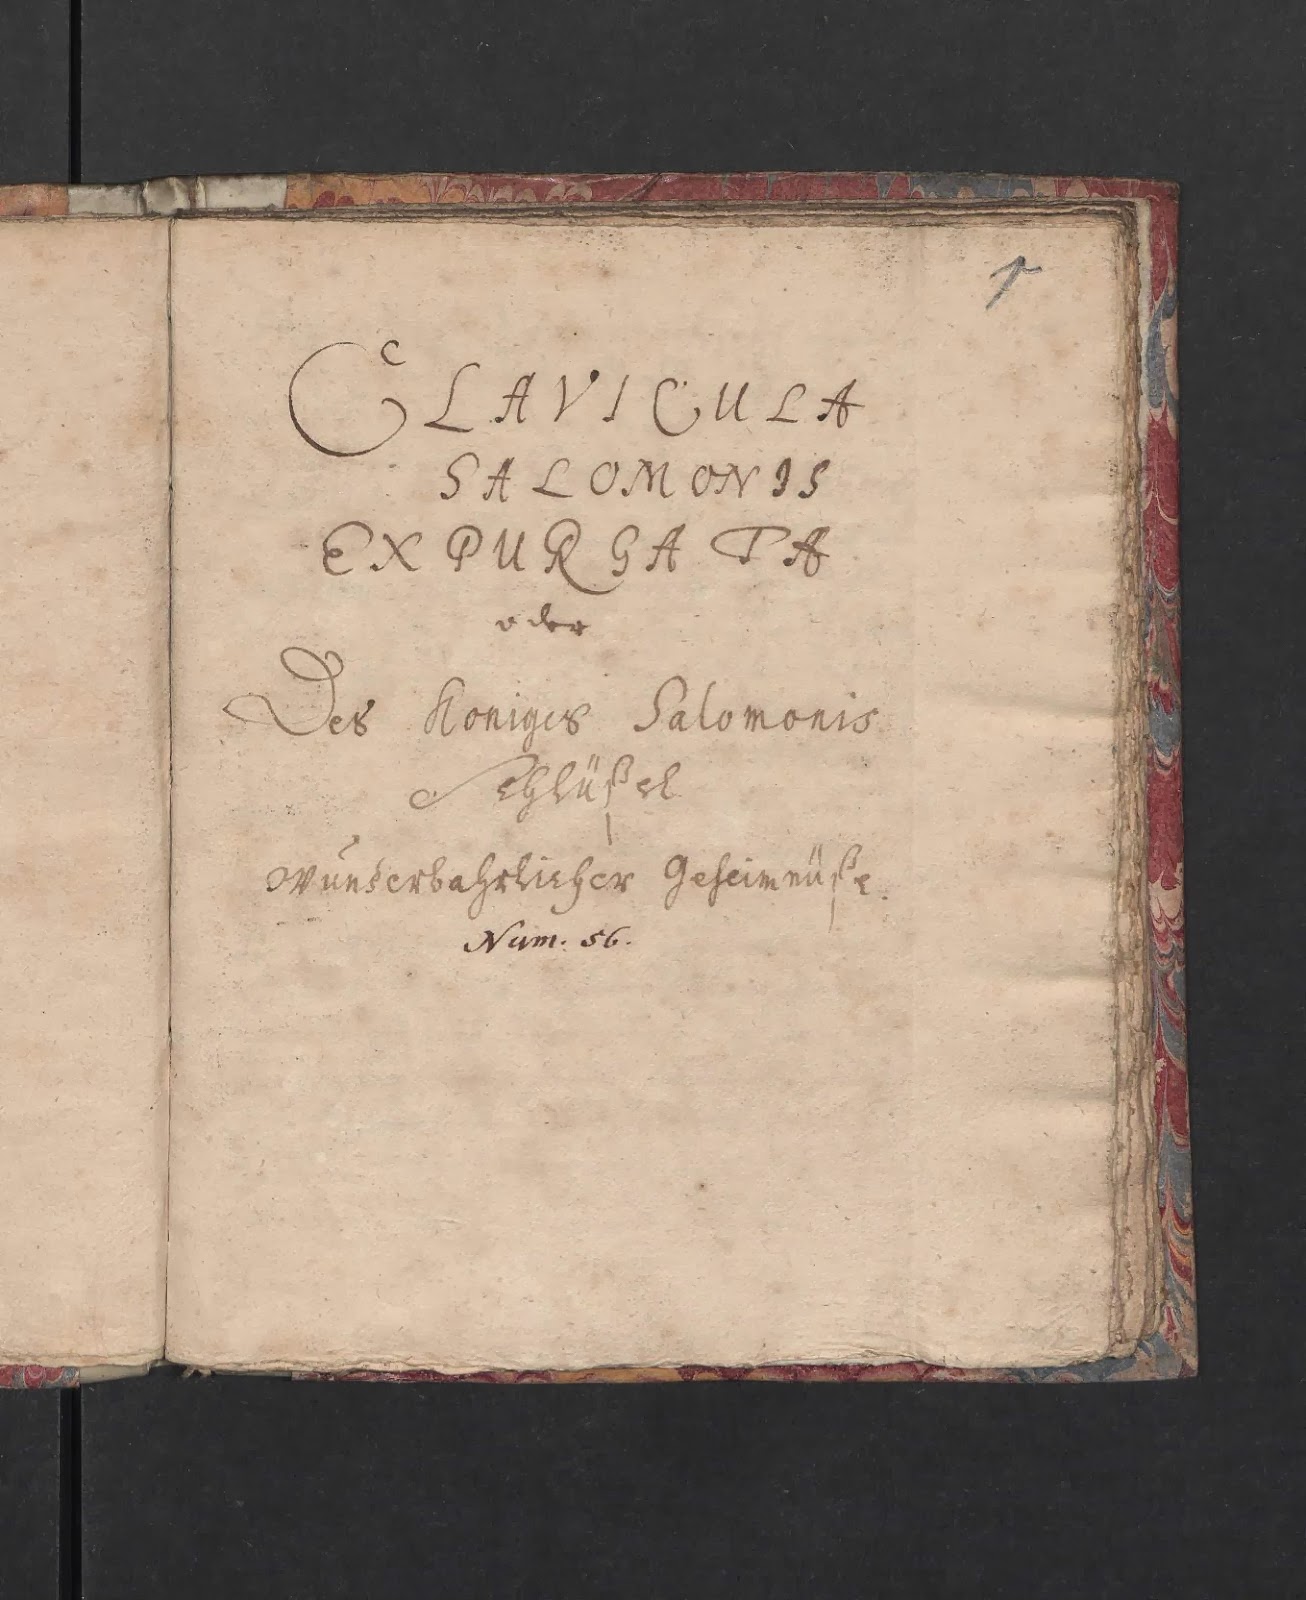 1
CLAVICULA
SALOMONIS
EXPURGATA
oder
Des Koniges Salomonis
Schlüßel
wunderbahrlicher Geheimnüße.
Num. 56.